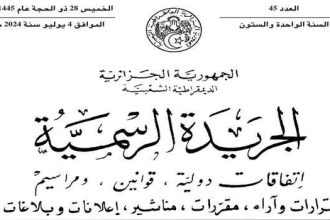 العدد 45
السنة الواحدة والستون
الخميس 28 ذو الحجة عام 1445
الموافق 4 يوليو سنة 2024
الجمهورية الجزائرية
الديمقراطية الشعبية
الجريدة الرسمية
اتفاقات دولية ، قوانين ، ومراسيم
قرارات وآراء ، مقررات ، مناشير ، إعلانات وبلاغات